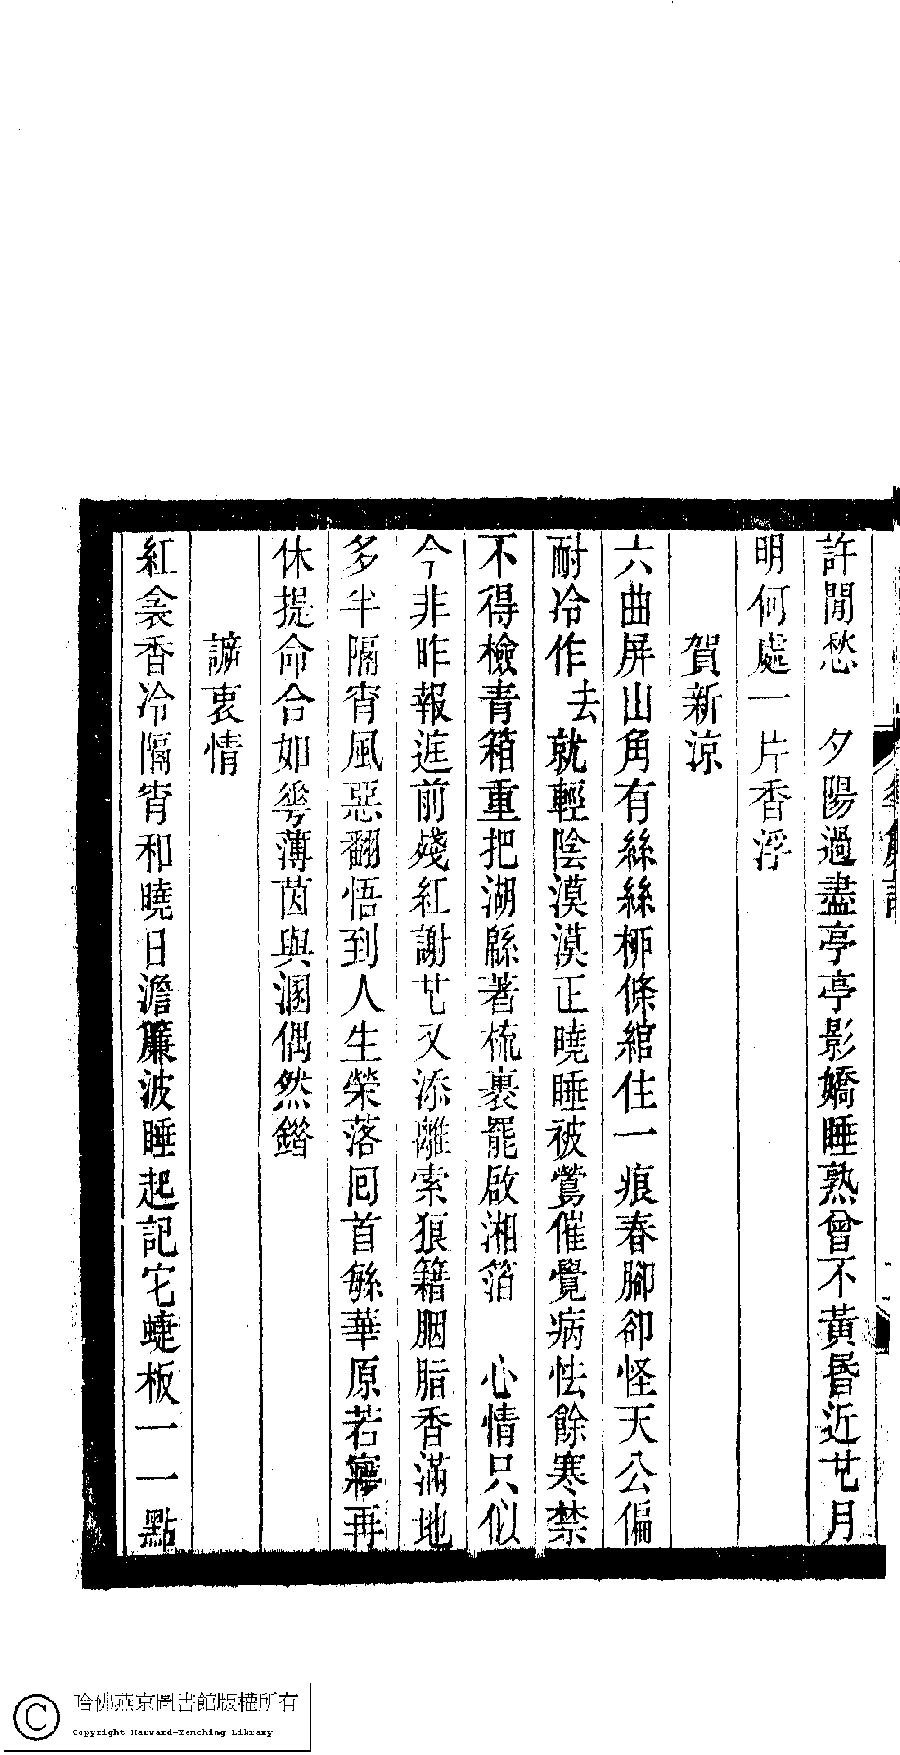 許閒愁　夕陽過盡亭亭影嬌睡熟曾不黃昬近廿月
明何處一片香浮
賀新涼
六曲屏山角有絲絲桺條綰住一痕春腳卻怪天公偏
耐冷作去就輕陰漠漠正曉睡被鶯催覺病怯餘寒禁
不得檢青箱重把湖緜著梳裹罷啟湘箔　心情只似
今非昨報迋前殘紅謝廿又添離索狼籍胭脂香滿地
多半隔宵風惡翻悟到人生榮落回首緐華原若寱再
休提命合如𠌶薄茵與溷偶然鎝
謶衷情
紅衾香冷隔宵和曉日澹簾波睡起記它蜨板一一點
哈佛燕京圖書館版權所有
Copyright Harvard-Yenching Library